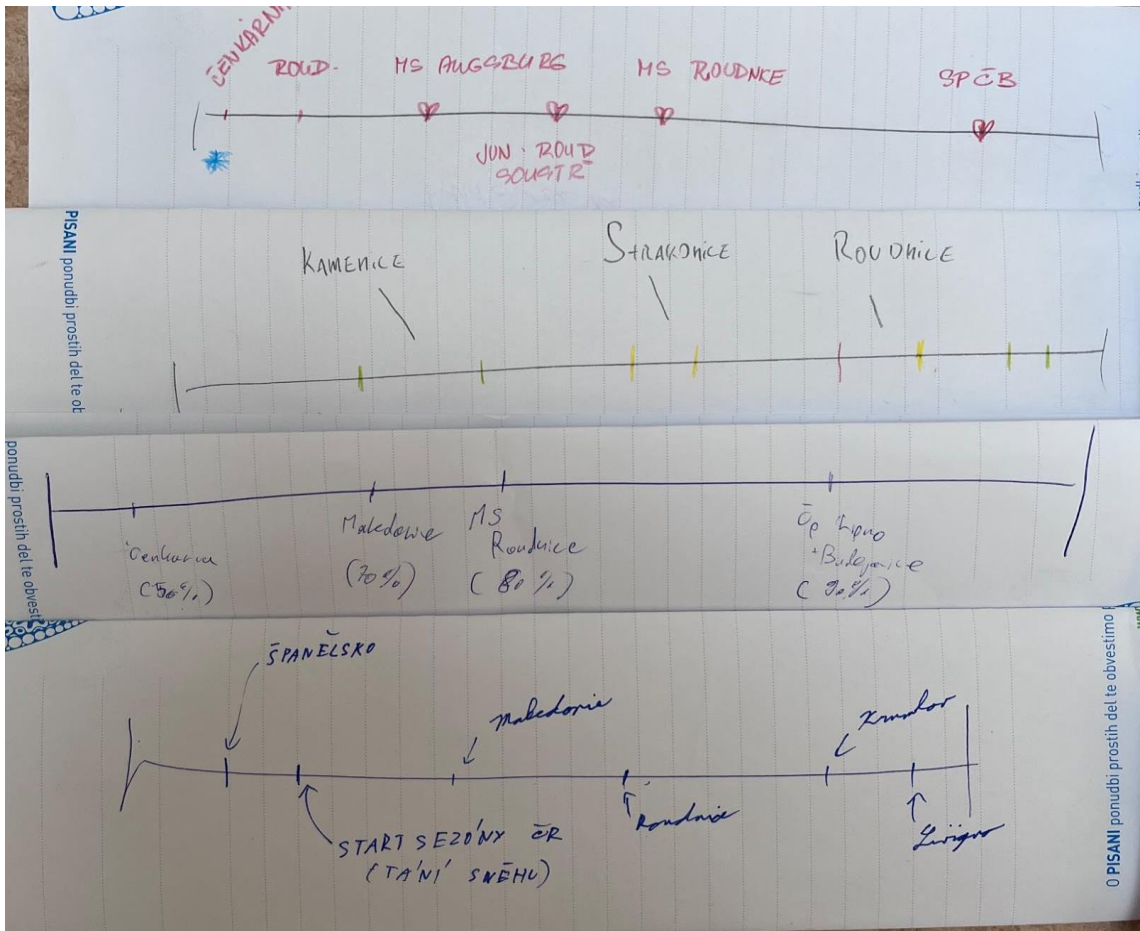 ČENKÁRNA
ROUD.
MS AUGSBURG
MS ROUDNKE
SPČB
JUN. ROUD
SOUSTŘ
PISANI ponudbi prostih del te ob
KAMENICE
STRAKONICE
ROUDNICE
ponudbi prostih del te obvest
Čenkarna
(50%)
Makedonie
(70%)
MS
Roudnice
(80%)
Čp Lipno
+ Budejovice
(90%)
ŠPANĚLSKO
Makedonie
Krumlov
START SEZÓNY ČR
(TÁNÍ SNĚHU)
Roudnice
Livigno
O PISANI ponudbi prostih del te obvestimo